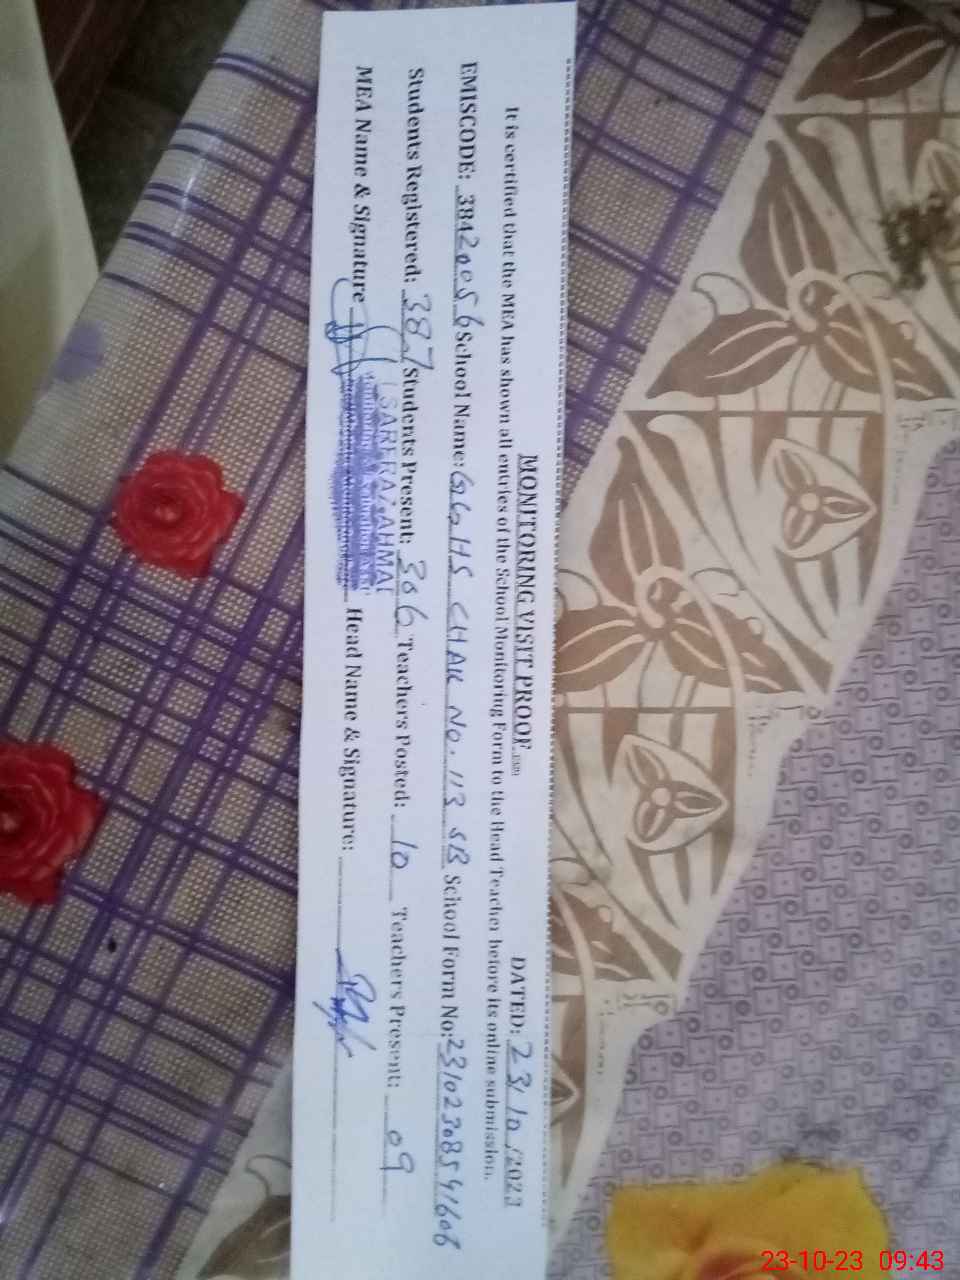 MONITORING VISIT PROOF DATED: 23/10/2023
It is certified that the MEA has shown all entries of the School Monitoring Form to the Head Teacher before its online submission.
EMISCODE: 38420056 School Name: GGHS CHAK NO. 113 SB School Form No: 23102308541606
Students Registered: 387 Students Present: 306 Teachers Posted: 10 Teachers Present: 09
MEA Name & Signature Head Name & Signature:
SARFRAZ AHMAD
23-10-23 09:43